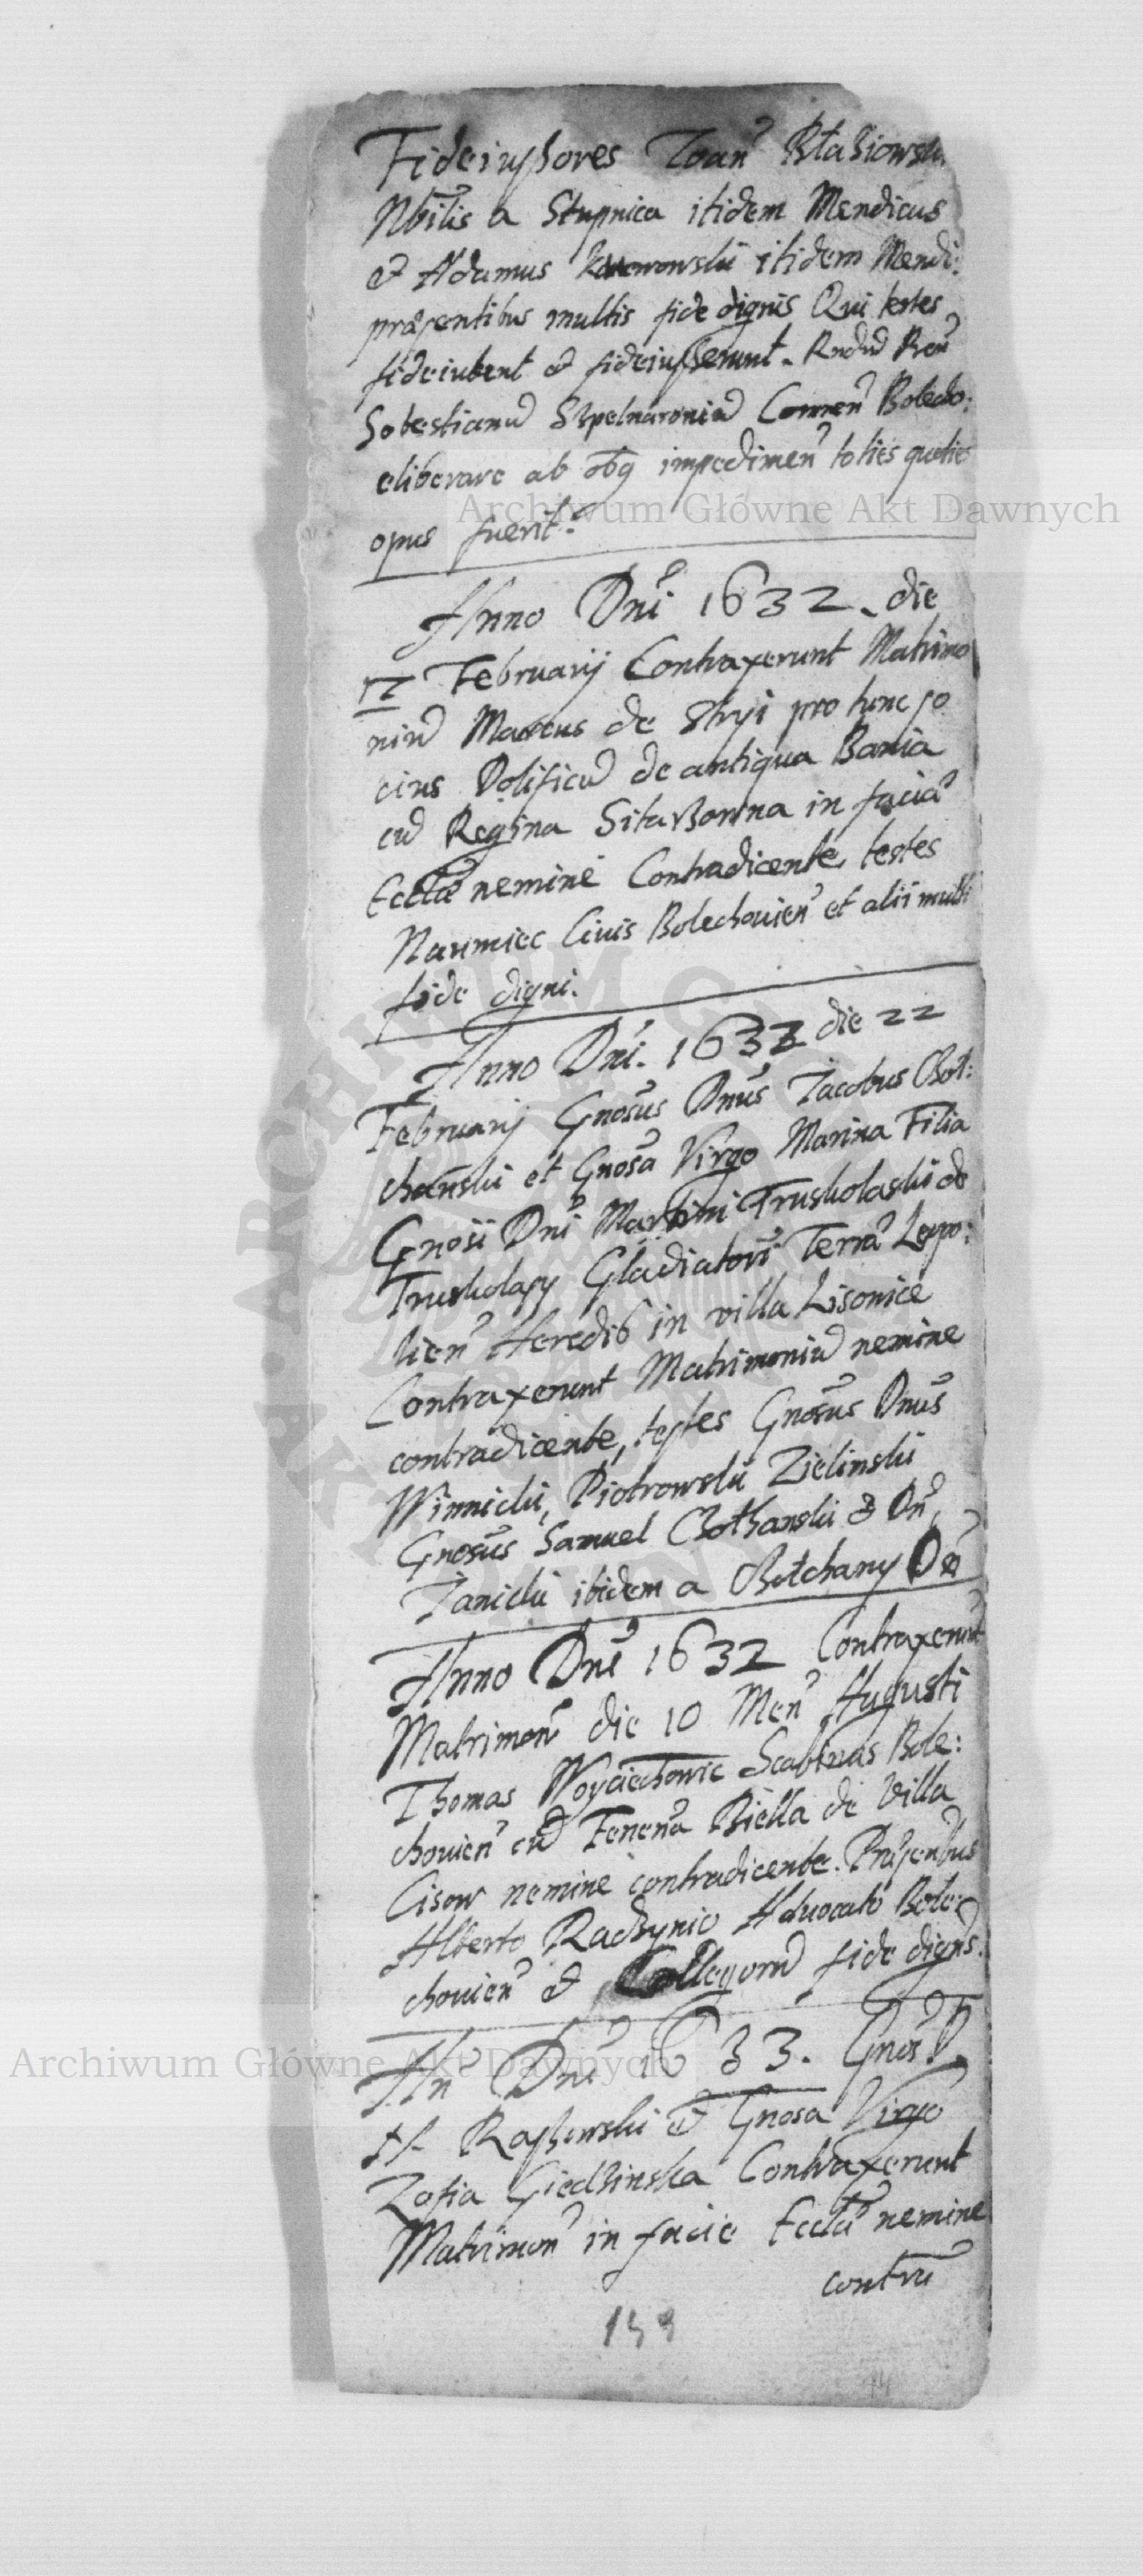 Fideiussores Joan̄ Błaziowski
Nbilis a Stupnica itidem Mendicus
et Adamus itidem Mendi:
præsentibus multis fide dignis Qui testes
fideiubent et fideiusserunt. Rndū
Sebestianū Comen̄ Bolecho:
eliberare ab impedimen̄ toties quoties
opus fuerit.
Archiwum Główne Akt Dawnych
Anno Dni 1632. die
17 Februarij Contraxerunt Matrimo
niū Marcus de Stryi pro tunc so
cius Dolificū de antiqua Bania
cū Regina Sitarzowna in facia
Ecclæ nemine Contradicente, testes
Naumiec Civis Bolechouien̄ et alii multi
fide digni.
Anno Dni. 1633 die 22
Februarij Gnosus Dnus Jacobus Choł:
chanski et Gnosa Virgo Marina Filia
Gnosi Dni Martini Truskolaski de
Truskolasy Gladiatori Terræ Leopo:
lien̄ Heredis in villa Lisowice
Contraxerunt Matrimoniū nemine
contradicente, testes Gnosus Dnus
Winnicki, Piotrowski Zielinski
Gnosus Samuel Chołhanski et Dn̄
Janicki ibidem a Bołchany
Anno Dni 1632 Contraxerunt
Matrimon̄ die 10 Men̄ Augusti
Thomas Woyciechowic Scabinus Bole:
chouien̄ cū Fenena Biella de Villa
Cisow nemine contradicente. Præsentibus
Alberto Radzynio Aduocato Bole:
chouien̄ et Collegorū fide dignis.
An̄ Dni 1633. Gnos D.
Archiwum Główne Akt Dawnych
A. Raszewski et Gnosa Virgo
Zofia Giedzinska Contraxerunt
Matrimon̄ in facie Ecclæ nemine
contra